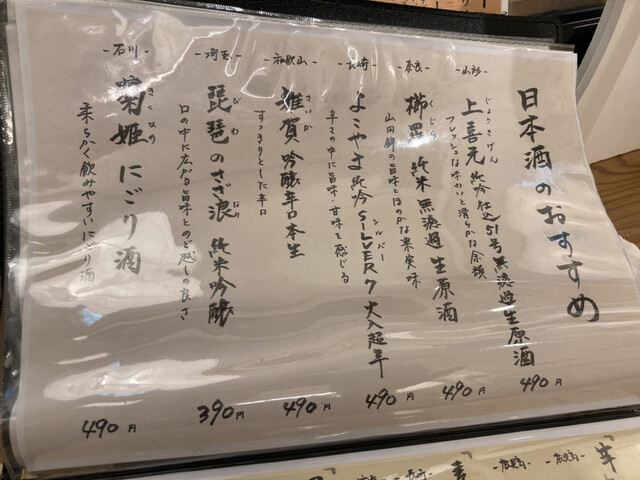 日本酒のおすすめ
-山形-
じょうきげん
上喜元 純吟 仕込51号 無濾過生原酒
フレッシュな味わいと滑らかな余韻
490円
-奈良-
くじら
櫛羅 純米 無濾過 生原酒
山田錦の旨味とほのかな果実味
490円
-長崎-
シルバー
よこやま 純吟 SILVER7 火入超辛
辛さの中に旨味・甘味を感じる
490円
-和歌山-
さいか
雑賀 吟醸辛口本生
すっきりとした辛口
490円
-埼玉-
びわ
なみ
琵琶のさざ浪 純米吟醸
口の中に広がる旨味とのど越しの良さ
390円
-石川-
きくひめ
菊姫 にごり酒
柔らかく飲みやすいにごり酒
490円